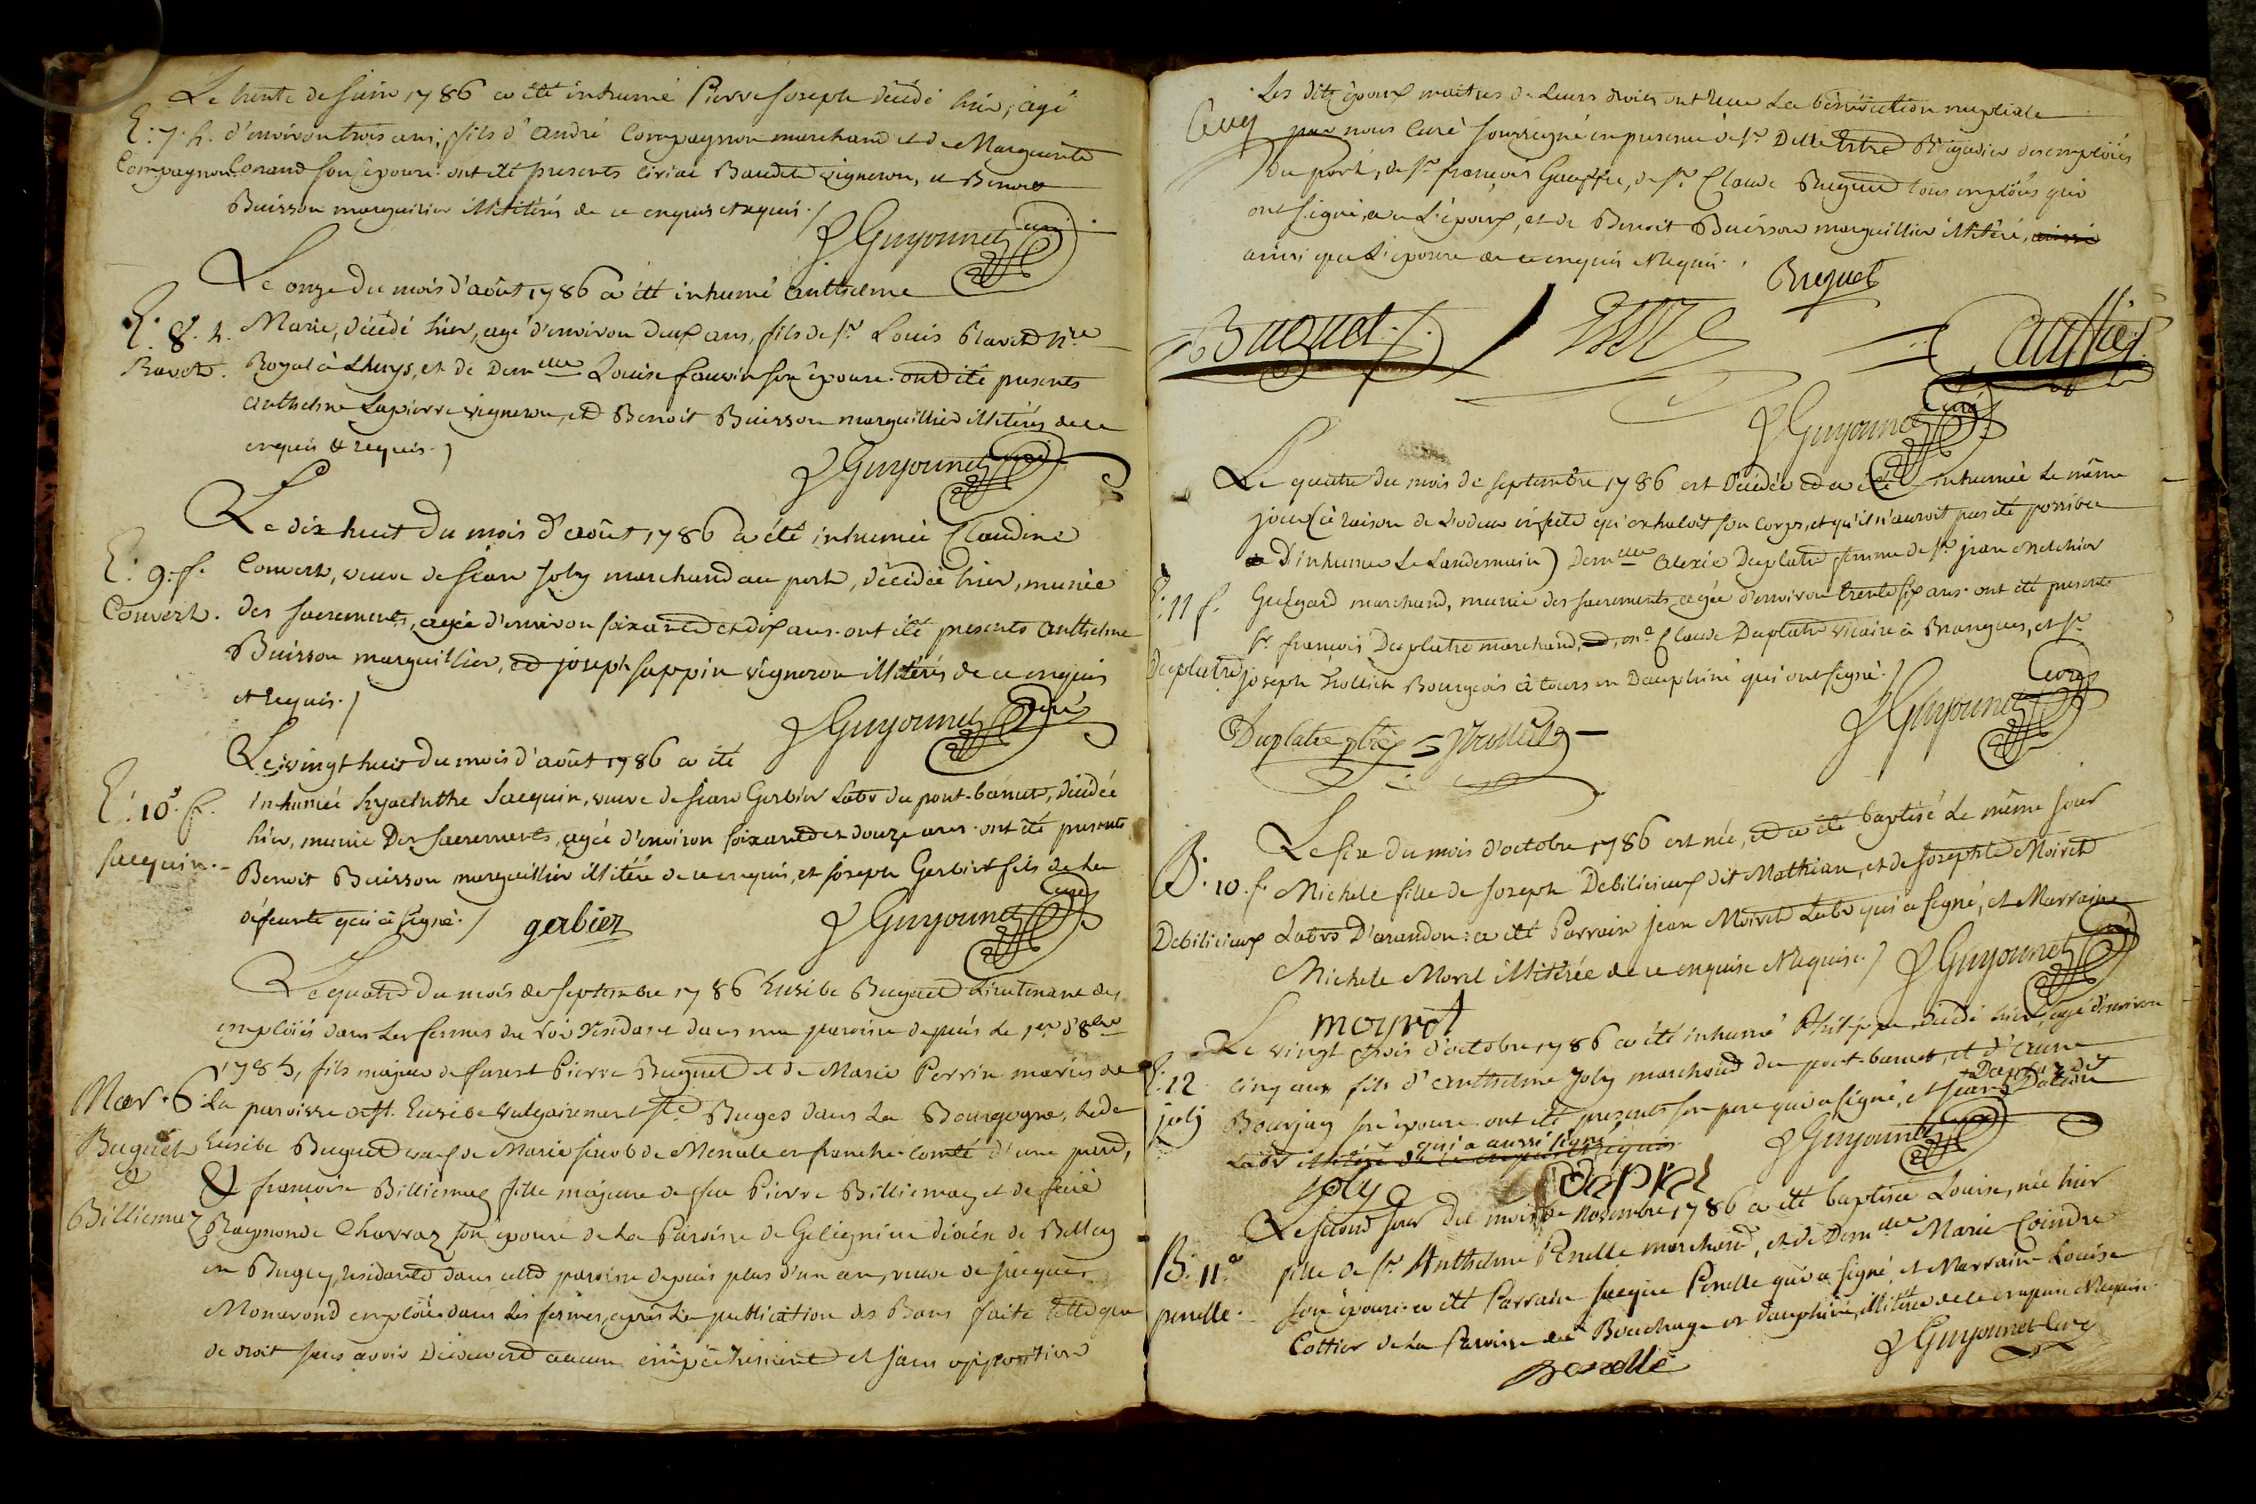 Le trente de juin 1786 a été inhumé Pierre Joseph décédé hier, agé
E: 7. h. d'environ trois ans, fils d'andré Compagnon marchand et de Marguerite
Compagnon Conand son épouse. ont été presents Ciriac Baudet vigneron, et Benoit
Buisson marguilier illitérés de ce enquis et requis./
J Guyonnet curé
Le onze du mois d'août 1786 a été inhumé Anthelme
E. 8. h. Marie, décédé hier, agé d'environ deux ans, fils de Sr Louis Ravet Nre
Ravet. Royal à Lhuys, et de Demlle Louise fauvin son épouse. ont été presents
Anthelme Lapierre vigneron, et Benoit Buisson marguillier illitérés de ce
enquis & requis.)
J Guyonnet curé
Le dix huit du mois d'août 1786 a été inhumée Claudine
E: 9. f. Convert, veuve de jean Joly marchand au port, décédée hier, munie
Convert. des sacrements, agée d'environ soixante et dix ans. ont été presents Anthelme
Buisson marguillier, et joseph sappin vigneron illitérés de ce enquis
et requis./
J Guyonnet curé
Le vingt huit du mois d'août 1786 a été
E: 10e. f. inhumée hyacinthe Jacquin, veuve de jean Gerbier Labr du pont-bancet, décédée
Jacquin. hier, munie Des sacrements, agée d'environ soixante et douze ans. ont été presents
Benoit Buisson marguillier illitéré de ce enquis, et joseph Gerbier fils de la
défeunte qui a signé./ gerbier J Guyonnet curé
Le quatre du mois de septembre 1786 Eusébe Buguet Lieutenant des
emploïés dans les fermes du roi résidant dans ma paroisse depuis le 1er d'8bre
1785, fils majeur de furent Pierre Buguet et de Marie Perrin mariés de
Mar. 6. la paroisse de st. Eusébe vulgairement St Buges dans la Bourgogne, ledt
Buguet Eusébe Buguet veuf de Marie jacob de Menale en franche-comté d'une part,
&
Et francoise Billiemaz fille majeure de feu Pierre Billiemaz et de feüe
Billiemaz Raymonde Charvaz son épouse de la Paroisse de Gélignieu diocèse de Belley
en Bugey, résidante dans cette paroisse depuis plus d'un an, veuve de jacques
Monavond emploïé dans les fermes, après la publication des Bans faite telle que
de droit sans avoir découvert aucun empêchement et sans opposition
Les dits époux maitres de leurs droits ont reçu la bénédiction nuptiale
par nous Curé soussigné en presence de Sr Delletre Brigadier des emploïés
du port, de Sr françois Gauffre, de Sr Claude Buguet tous emploïés qui
ont signé avec L'époux, et de Benoit Buisson marguillier illitéré, aussi
ainsi que L'épouse de ce enquis & requis.
Buguet
Buguet
J Guyonnet curé
Le quatre du mois de septembre 1786 est décédée et a été inhumée le même
jour (à raison de l'odeur infecte qu'exhaloit son corps, et qu'il n'auroit pas été possible
d'inhumer le Landemain) Demlle Alexie Duplatre femme de Sr jean melchior
E: 11 f. Guégard marchand, munie des sacrements, agée d'environ trente six ans. ont été presents
Sr francois Duplatre marchand, et, mr Claude Duplatre vicaire à Brangues, et Sr
Duplatre joseph Trollich Bourgeois à tours en Dauphiné qui ont signé./
Duplatre ptre J Guyonnet curé
Le six du mois d'octobre 1786 est née, et a été baptisé le même jour
B. 10. f. Michele fille de joseph Debilicieux dit Mathian, et de josephte Moiret
Debilicieux Labrs D'arandon: a été Parrain jean Moiret Labr qui a signé, et Marraine
Michele Morel illitérée de ce enquise & requise./ J Guyonnet curé
moyret
Le vingt trois d'octobre 1786 a été inhumé Philippe, décédé hier, agé d'environ
E: 12 cinq ans fils d'Anthelme Joly marchand du port-bancet, et d'Anne
joly Bourjay son épouse. ont été presents son pere qui a signé, et jean
Labr illitéré de ce enquis & requis qui a aussi signé
joly J Guyonnet curé
Le second jour du mois de novembre 1786 a été baptisée Louise, née hier
B. 11.e fille de Sr Anthelme Penelle marchand, et de Demlle Marie Coindre
penelle. son épouse. a été Parrain jacque Penelle qui a signé, et Marraine Louise
Cottier de la Paroisse du Bouchage en dauphiné, illitérée de ce enquise & requise.
penelle J Guyonnet curé